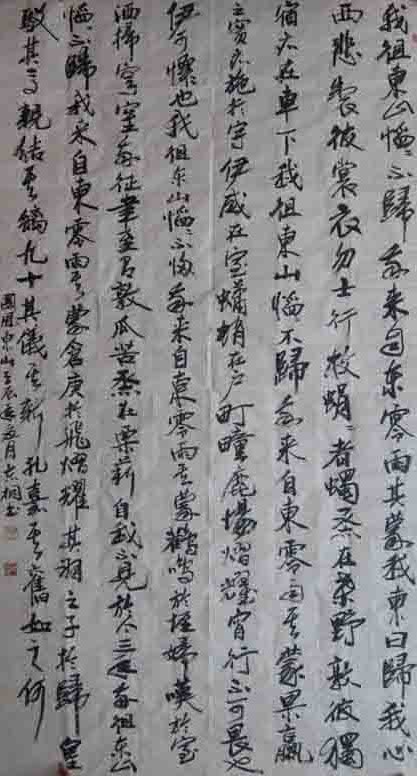 我徂東山慆慆不歸我來自東零雨其蒙我東曰歸我心
西悲製彼裳衣勿士行枚蜎蜎者蠋烝在桑野敦彼獨
宿亦在車下我徂東山慆慆不歸我來自東零雨其蒙果蠃
之實亦施於宇伊威在室蠨蛸在戶町畽鹿場熠耀宵行不可畏也
伊可懷也我徂東山慆慆不歸我來自東零雨其蒙鸛鳴於垤婦嘆於室
洒掃穹窒我征聿至有敦瓜苦烝在栗薪自我不見於今三年我徂東山
慆慆不歸我來自東零雨其蒙倉庚於飛熠耀其羽之子於歸皇
駁其馬親結其縭九十其儀其新孔嘉其舊如之何
國風東山壬辰月桐書